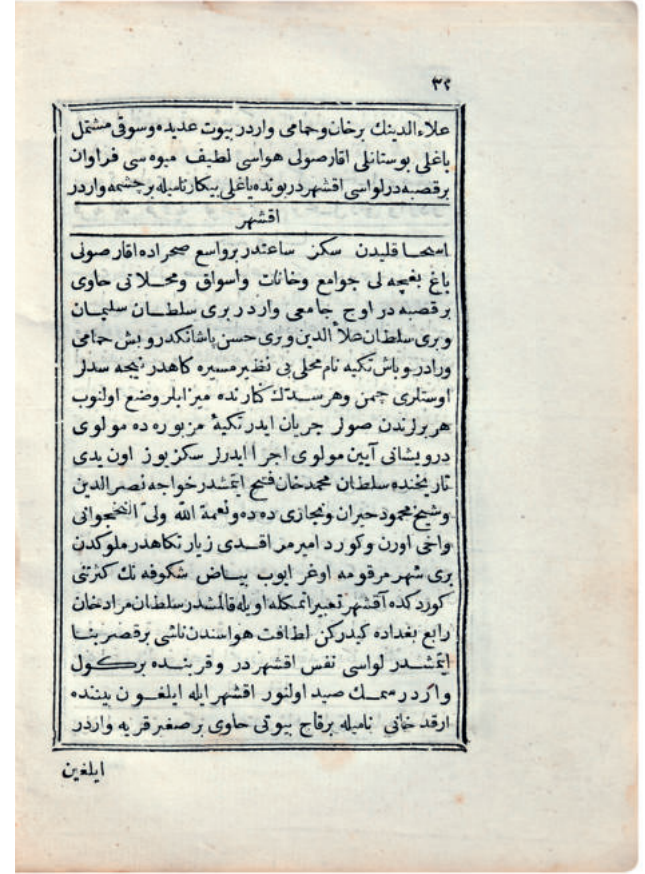 ٣٢
علاءالدينك برخان وحمامى واردر بيوت عديده وسوقى مشتمل
باغلى بوستانلى اقارصولى هواسى لطيف ميوه سى فراوان
برقصبه در لواسى اقشهردر بونده ياغلى بيكار ناميله برچشمه واردر
اقشهر
اسحاقليدن سكز ساعتدر برواسع صحراده اقارصولى
باغ بغچه لى جوامع وخانات واسواق ومحلاتى حاوى
برقصبه در اوج جامعى واردر برى سلطان سليمان
وبرى سلطان علاالدين وبرى حسن پاشانكدر وبش حمامى
واردر وباش تكيه نام محلى بى نظير مسيره كاهدر نيجه سدلر
اوستلرى چمن وهر سدك كنارنده ميزابلر وضع اولنوب
هر برلرندن صولر جريان ايدر تكيۀ مزبوره ده مولوى
درويشانى آيين مولوى اجرا ايدرلر سكزيوز اون يدى
تاريخنده سلطان محمدخان فتح ايتمشدر خواجه نصرالدين
وشيخ محمود حيران ونيجازى ده ده ونعمة الله ولى النخجوانى
واخى اورن وكورد امير مراقدى زيارتكاهدر ملوكدن
برى شهر مرقومه اوغرايوب بياض شكوفه نك كثرتنى
كوردكده آقشهر تعبير اتمكله اويله قالمشدر سلطان مرادخان
رابع بغداده كيدركن لطافت هواسندن ناشى برقصر بنا
ايتمشدر لواسى نفس اقشهردر وقربنده بركول
واردر سمك صيد اولنور اقشهر ايله ايلغون بيننده
ارقدخانى ناميله برقاچ بيوتى حاوى برصغير قريه واردر
ايلغين